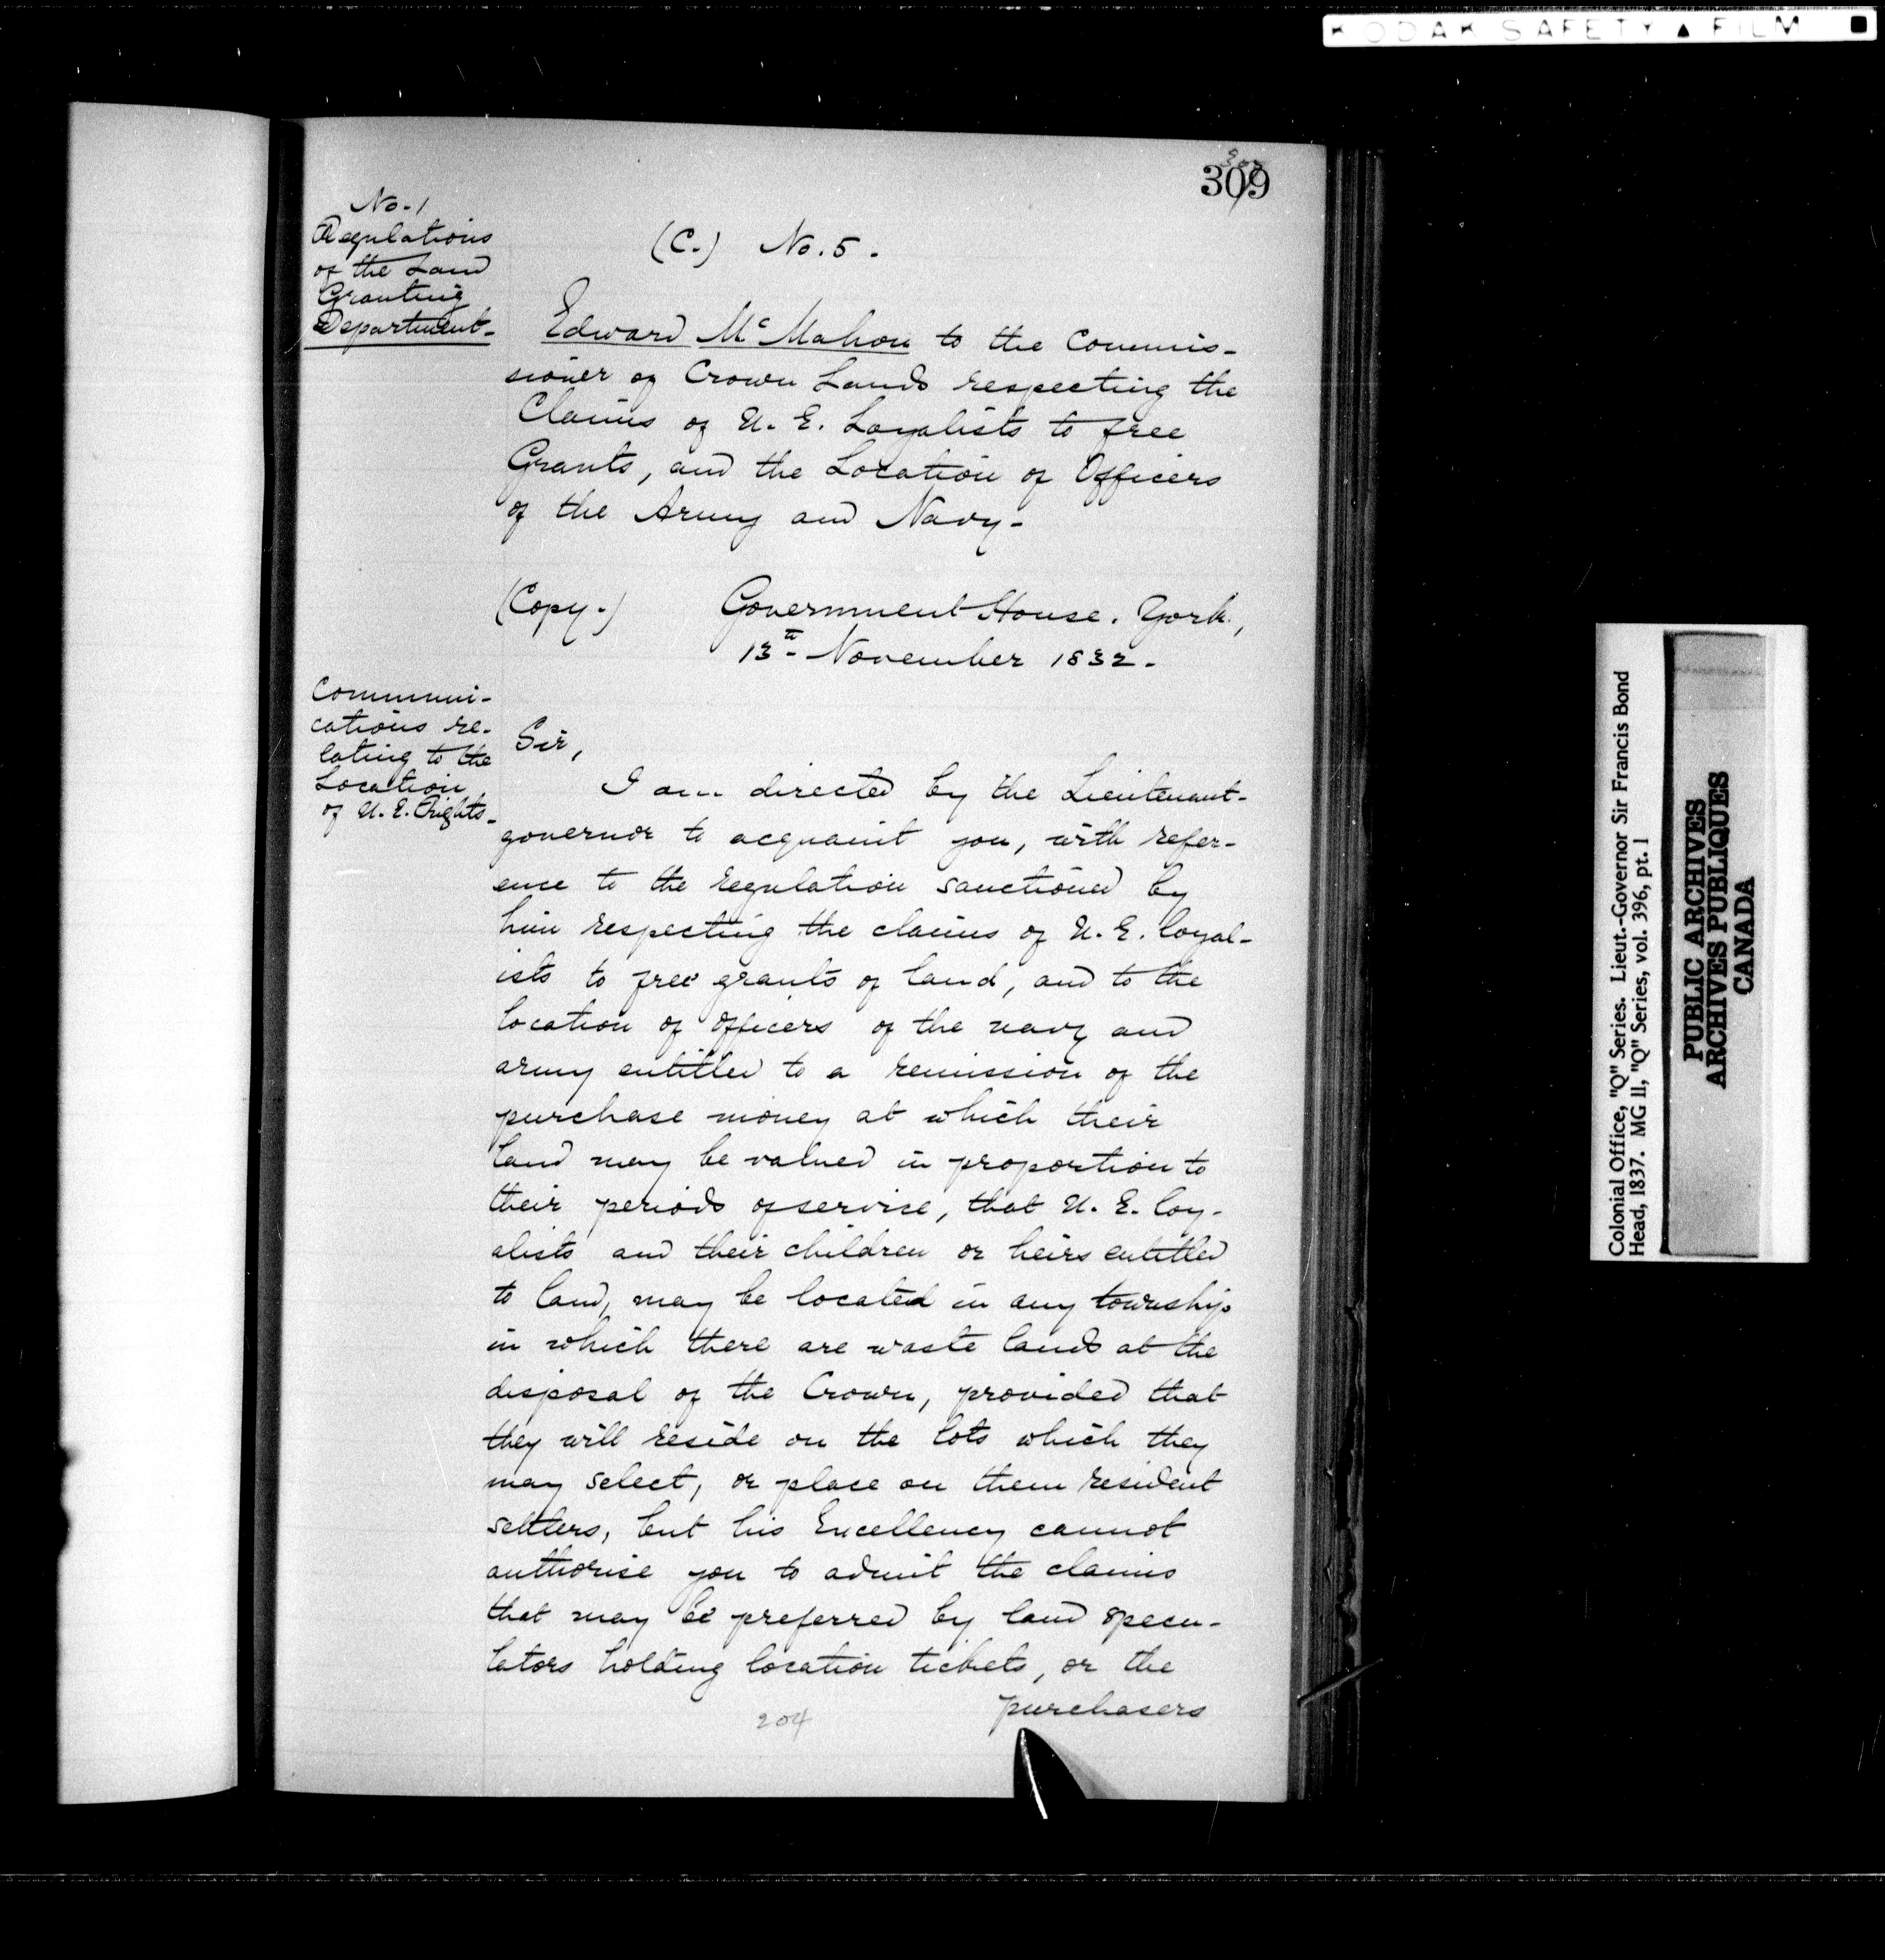 KODAK SAFETY ▲ FILM
309
No. 1
Regulations
of the Land
Granting
Department-
(C.) No. 5.
Edward McMahon to the Commis-
sioner of Crown Lands respecting the
Claims of U. E. Loyalists to free
Grants, and the Location of Officers
of the Army and Navy-
(Copy.) Government House. York,
13th November 1832-
Communi-
cations re-
lating to the
Location
of U. E. Rights-
Sir,
I am directed by the Lieutenant-
governor to acquaint you, with refer-
ence to the regulation sanctioned by
him respecting the claims of U. E. loyal-
ists to free grants of land, and to the
location of officers of the navy and
army entitled to a remission of the
purchase money at which their
land may be valued in proportion to
their periods of service, that U. E. loy-
alists and their children or heirs entitled
to land, may be located in any township
in which there are waste lands at the
disposal of the Crown, provided that
they will reside on the lots which they
may select, or place on them resident
settlers, but his Excellency cannot
authorise you to admit the claims
that may be preferred by land specu-
lators holding location tickets, or the
purchasers
204
Colonial Office, "Q" Series. Lieut.-Governor Sir Francis Bond
Head, 1837. MG 11, "Q" Series, vol. 396, pt. 1
PUBLIC ARCHIVES
ARCHIVES PUBLIQUES
CANADA